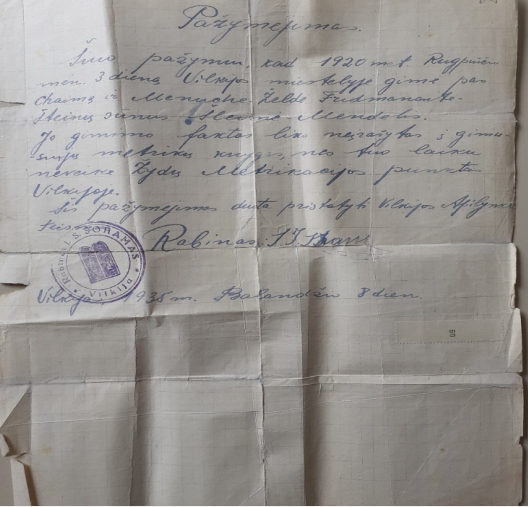 Pažymėjimas.
Šiuo pažymiu, kad 1920 m. Rugpiučio
mėn. 3 dieną Vilkijos miestelyje gimė pas
Chaimą ir Menuchę Zeldę Fridmanaitę-
Šteinus sunus Mendelis.
Jo gimimo faktas liko neįrašytas į gimu-
siųjų metrikų knygą, nes tuo laiku
neveikė Žydų Metrikacijos punktas
Vilkijoje.
Šis pažymėjimas duota pristatyti Vilkijos Apilynkės
Teismui
Rabinas
Rabinas I. S. SORAMAS
Vilkija
Vilkija, 1935 m. Balandžio 8 dien.